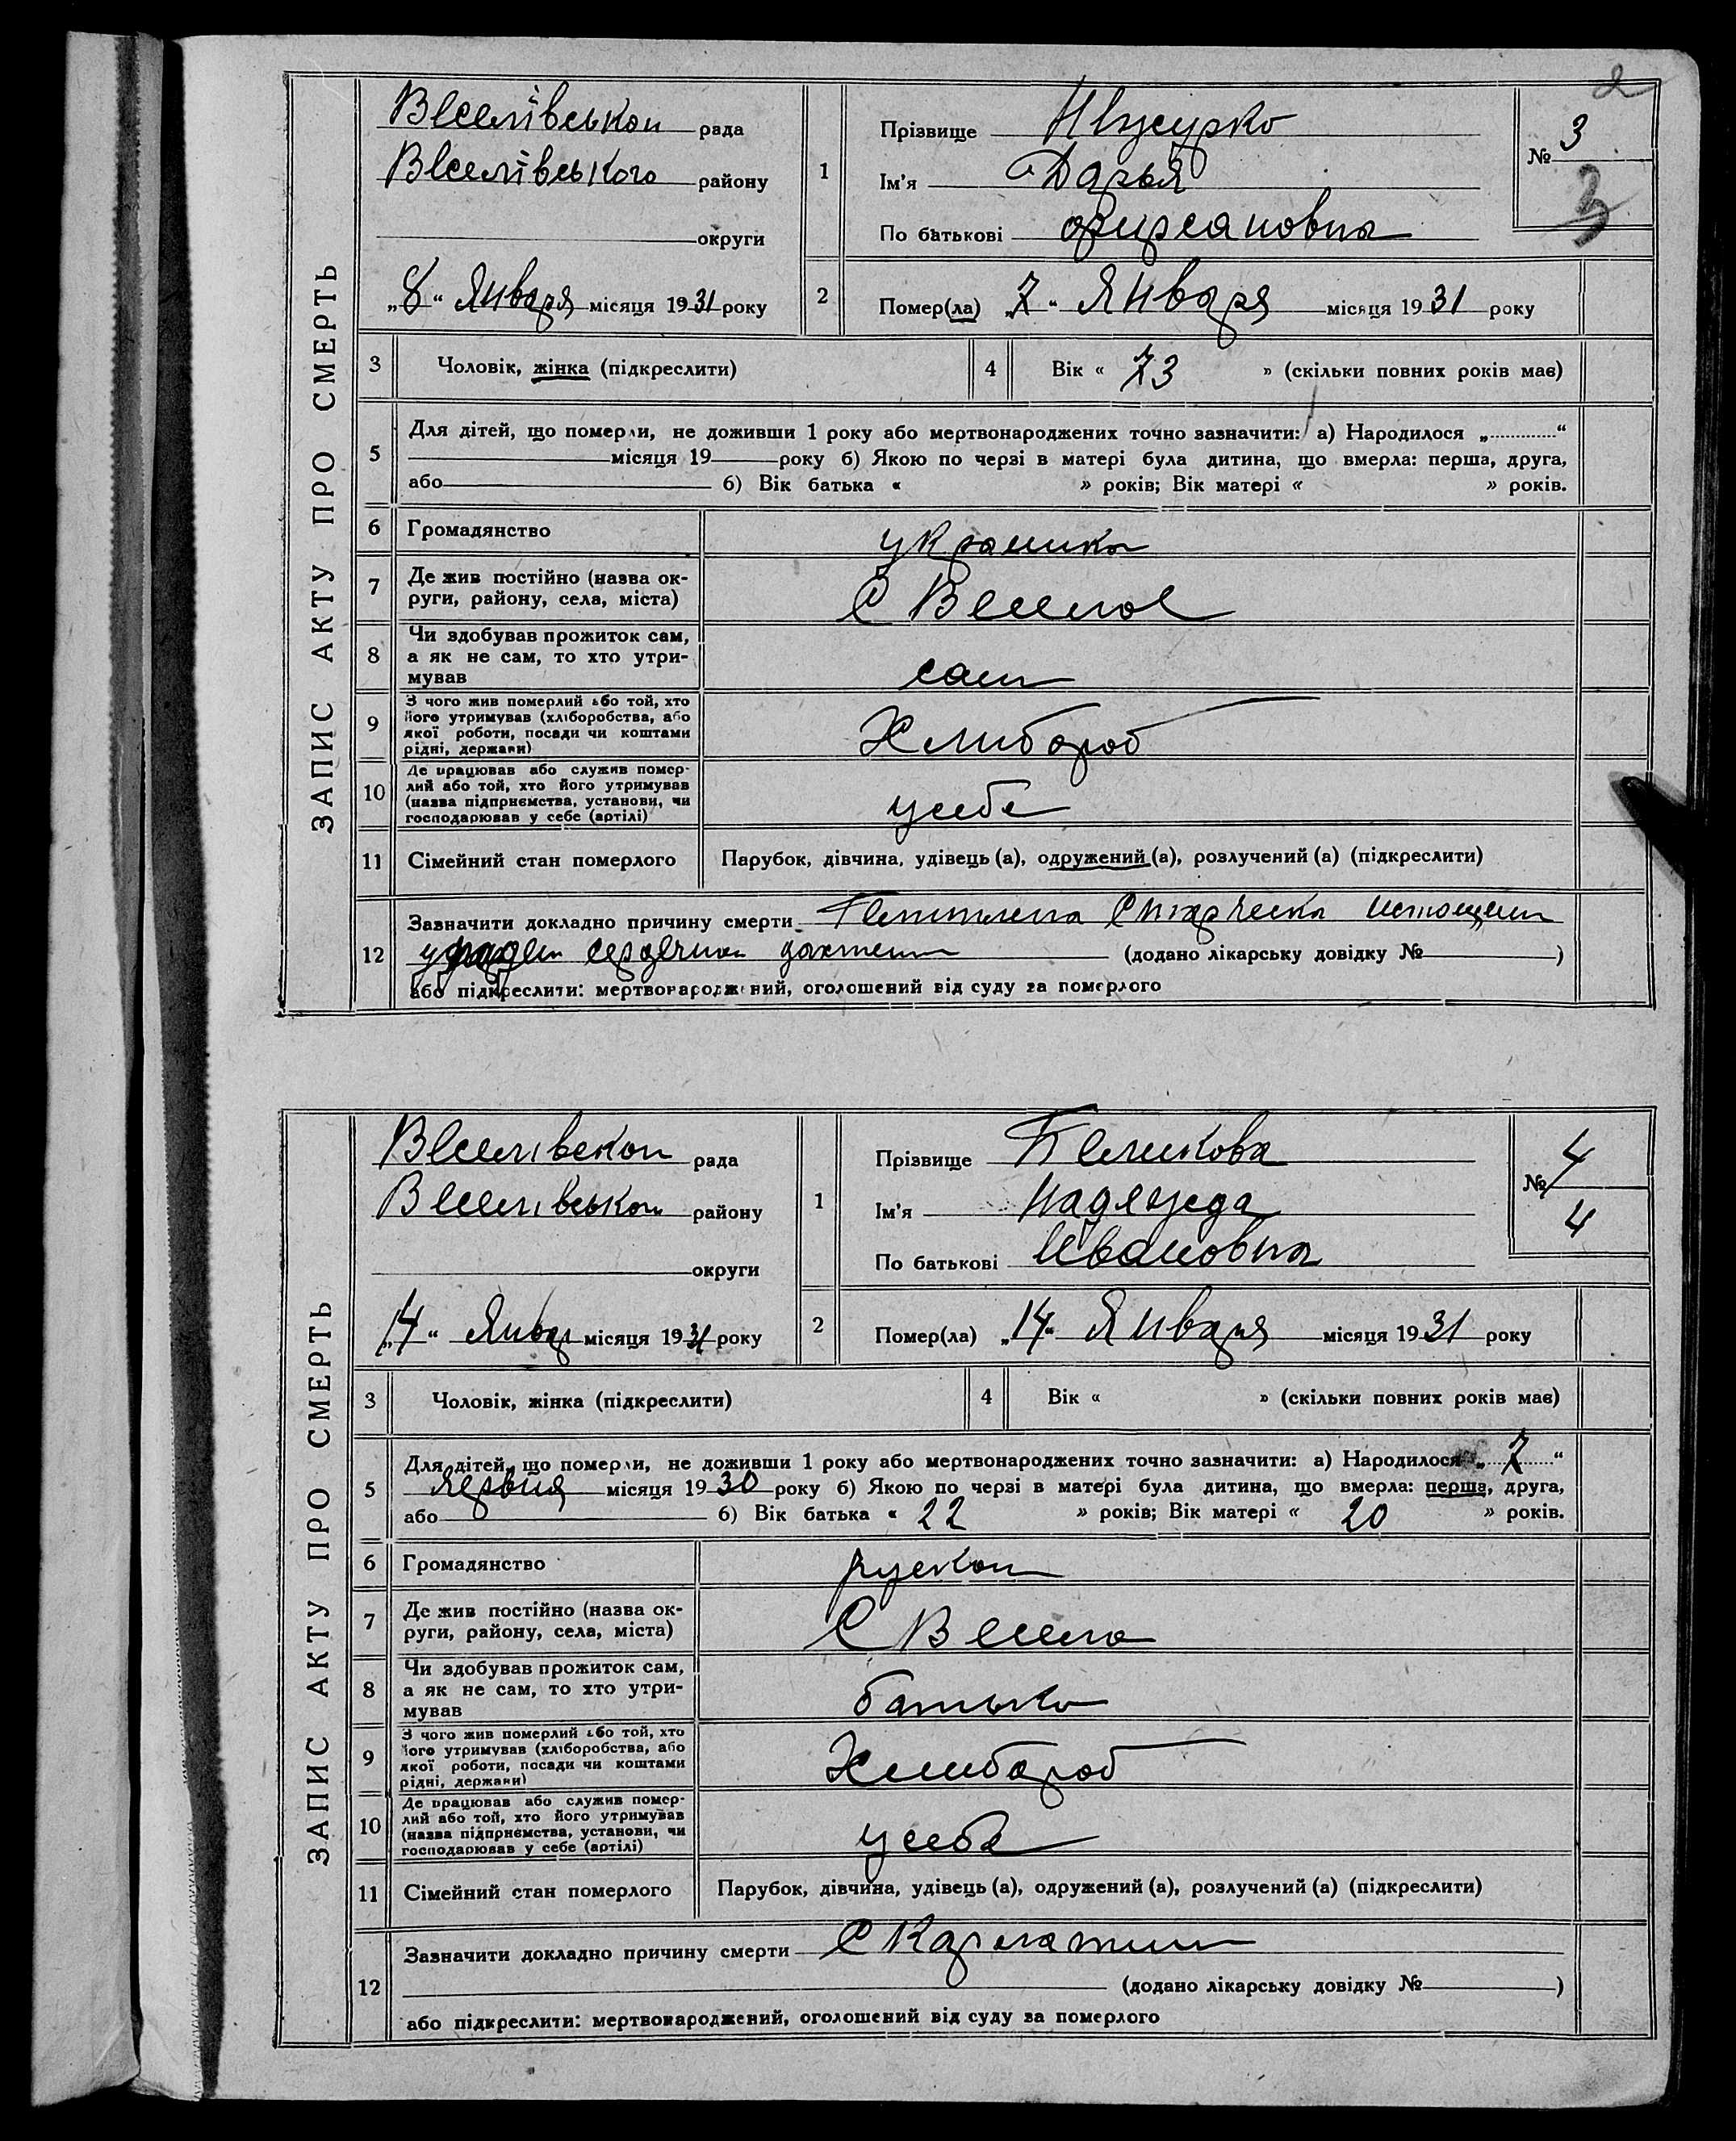 2
ЗАПИС АКТУ ПРО СМЕРТЬ
Веселівськои рада
Веселівського району
округи
„8“ Января місяця 1931 року
1
Прізвище
Ім'я Дарья
По батькові Фирсановна
№ 3
3
2 Помер(ла) „7“ Января місяця 1931 року
3 Чоловік, жінка (підкреслити)
4 Вік « 73 » (скільки повних років має)
5 Для дітей, що померли, не доживши 1 року або мертвонароджених точно зазначити: а) Народилося „ “
місяця 19 року б) Якою по черзі в матері була дитина, що вмерла: перша, друга,
або б) Вік батька « » років; Вік матері « » років.
6 Громадянство украинка
7 Де жив постійно (назва ок-
руги, району, села, міста) С Веселое
8 Чи здобував прожиток сам,
а як не сам, то хто утри-
мував сам
9 З чого жив померлий або той, хто
його утримував (хліборобства, або
якої роботи, посади чи коштами
рідні, держави) Хлибороб
10 Де працював або служив помер-
лий або той, хто його утримував
(назва підприємства, установи, чи
господарював у себе (артілі) у себе
11 Сімейний стан померлого Парубок, дівчина, удівець (а), одружений (а), розлучений (а) (підкреслити)
12 Зазначити докладно причину смерти
сердечной (додано лікарську довідку № )
або підкреслити: мертвонароджений, оголошений від суду за померлого
ЗАПИС АКТУ ПРО СМЕРТЬ
Веселівскои рада
Веселівськои району
округи
„14“ Январ місяця 1931 року
1
Прізвище Пеликова
Ім'я Надежда
По батькові Ивановна
№ 4
4
2 Помер(ла) „14“ Января місяця 1931 року
3 Чоловік, жінка (підкреслити)
4 Вік « » (скільки повних років має)
5 Для дітей, що померли, не доживши 1 року або мертвонароджених точно зазначити: а) Народилося „7“
місяця 1930 року б) Якою по черзі в матері була дитина, що вмерла: перша, друга,
або б) Вік батька « 22 » років; Вік матері « 20 » років.
6 Громадянство рускои
7 Де жив постійно (назва ок-
руги, району, села, міста) С Весело
8 Чи здобував прожиток сам,
а як не сам, то хто утри-
мував батько
9 З чого жив померлий або той, хто
його утримував (хліборобства, або
якої роботи, посади чи коштами
рідні, держави) Хлибороб
10 Де працював або служив помер-
лий або той, хто його утримував
(назва підприємства, установи, чи
господарював у себе (артілі) у себе
11 Сімейний стан померлого Парубок, дівчина, удівець (а), одружений (а), розлучений (а) (підкреслити)
12 Зазначити докладно причину смерти Скарлатин
(додано лікарську довідку № )
або підкреслити: мертвонароджений, оголошений від суду за померлого